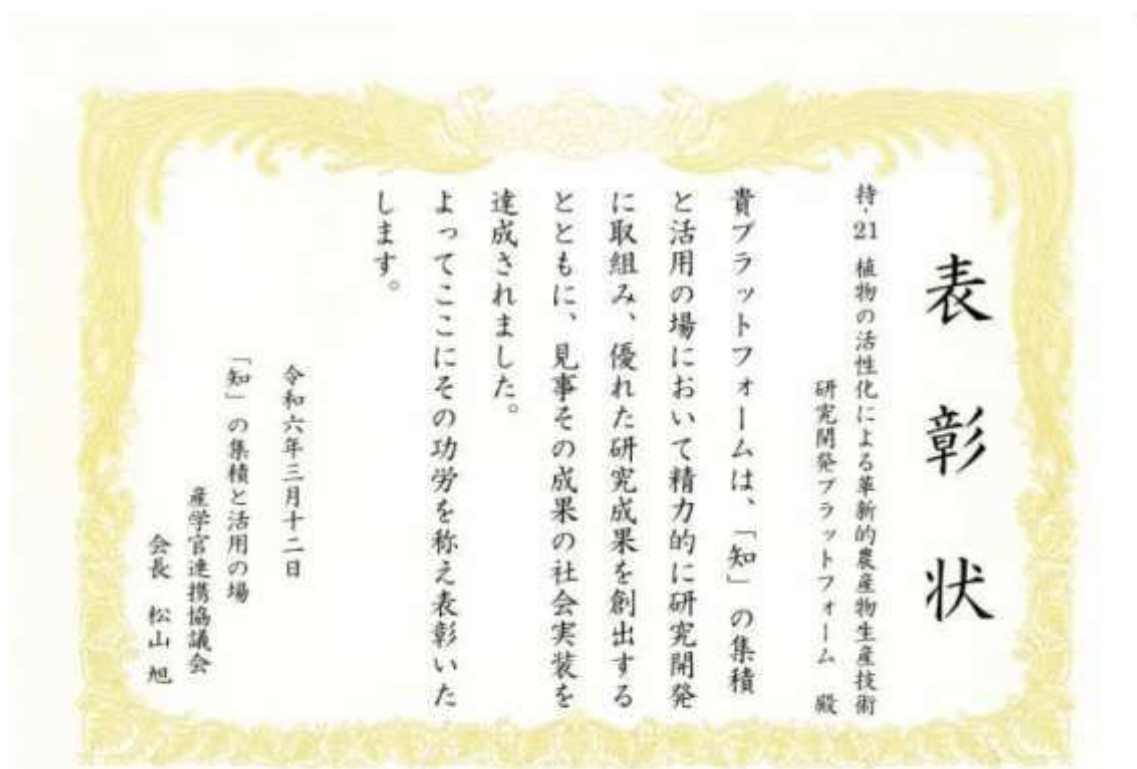 表彰状
持-21 植物の活性化による革新的農産物生産技術
研究開発プラットフォーム 殿
貴プラットフォームは、「知」の集積
と活用の場において精力的に研究開発
に取組み、優れた研究成果を創出する
とともに、見事その成果の社会実装を
達成されました。
よってここにその功労を称え表彰いた
します。
令和六年三月十二日
「知」の集積と活用の場
産学官連携協議会
会長 松山 旭